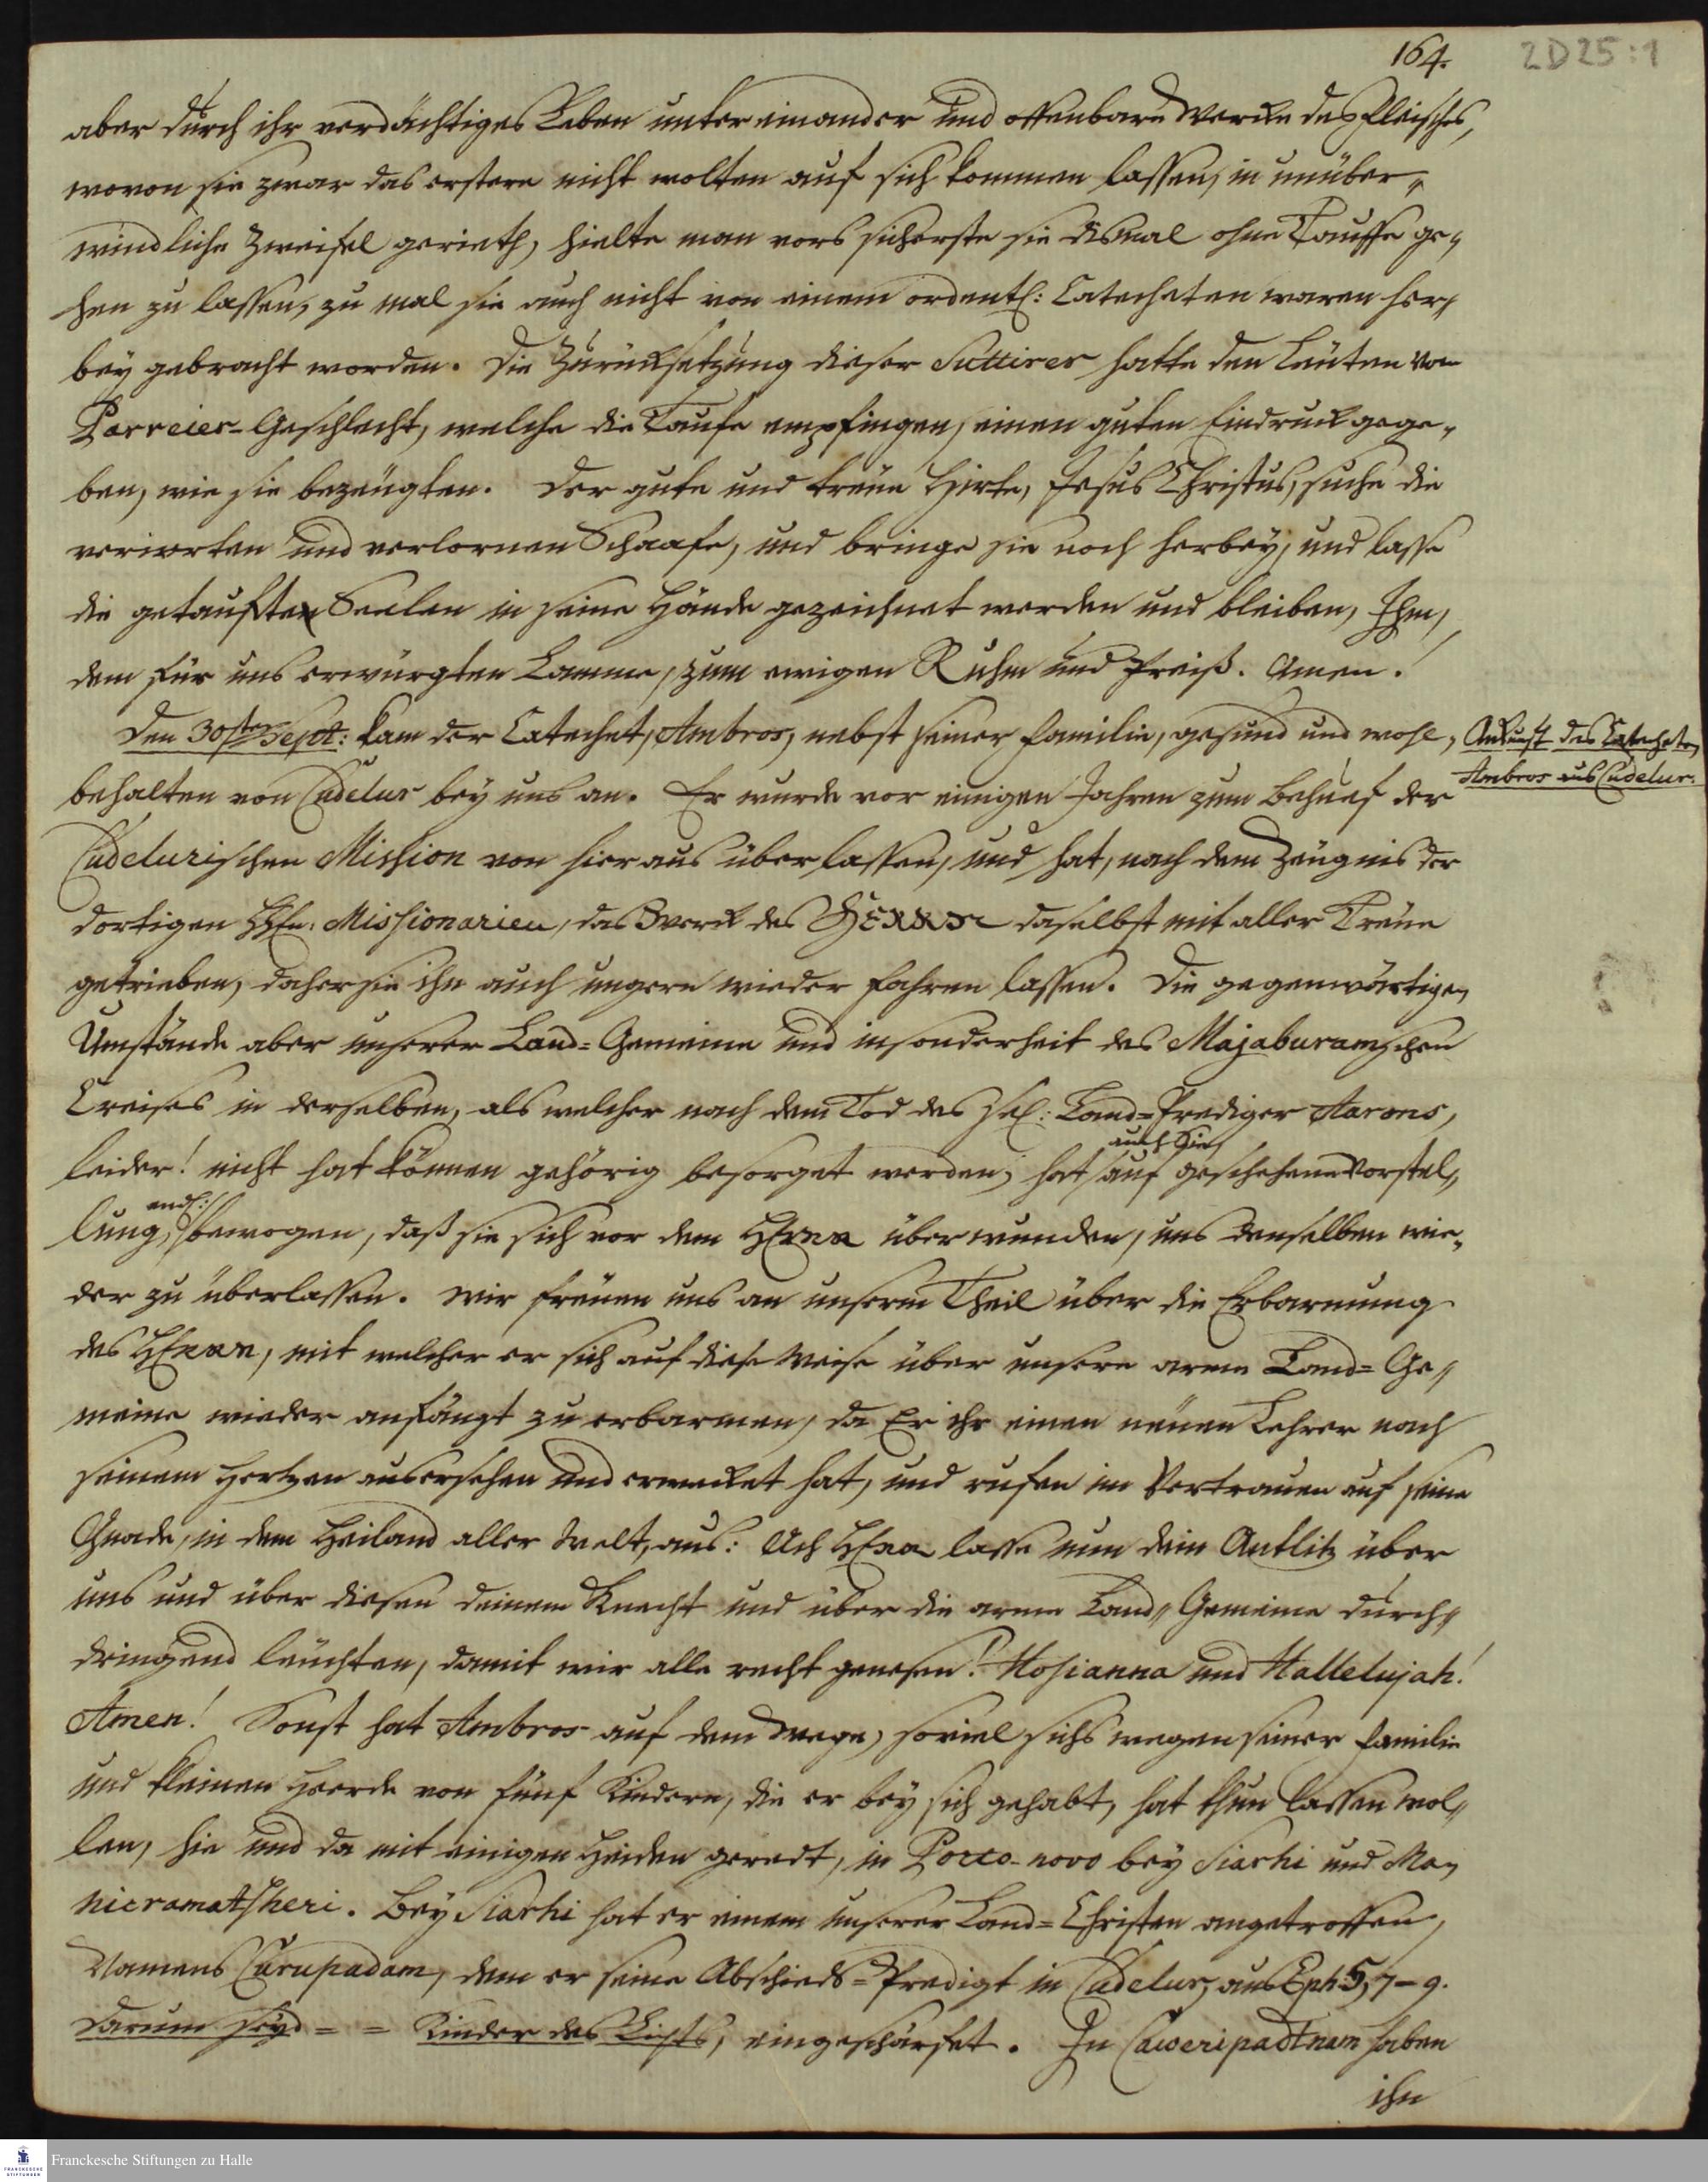 164.
2D25:1
aber durch ihr verdächtiges Leben unter einander und offenbare Wercke des Fleisches,
wovon sie zwar das erstere nicht wolten auf sich kommen lassen, in unüber-
windliche Zweifel gerieth, hielte man vors sicherste sie dismal ohne Tauffe ge-
hen zu lassen, zu mal sie auch nicht von einem ordentl: Catecheten waren her-
bey gebracht worden. Die Zurücksetzung dieser Suttirer hatte den Leuten von
Parreier-Geschlecht, welche die Taufe empfingen, einen guten Eindruck gege-
ben, wie sie bezeugten. Der gute und treue Hirte, Jesus Christus, suche die
verirrten und verlornen Schaafe, und bringe sie noch herbey, und lasse
die getauften Seelen in seine Hände gezeichnet werden und bleiben, Ihm,
dem für uns erwürgten Lamme, zum ewigen Ruhm und Preiß. Amen!
Den 30sten Sept: kam der Catechet, Ambros, nebst seiner Familie, gesund und wohl-
Ankunft des Catecheten
Ambros aus Cudelur.
behalten von Cudelur bey uns an. Er wurde vor einigen Jahren zum Behuef der
Cudelurischen Mission von hier aus überlassen, und hat, nach dem Zeugnis der
dortigen HHn. Missionarien, das Werck des HErrn daselbst mit aller Treue
getrieben, daher sie ihn auch ungern wieder fahren lassen. Die gegenwärtigen
Umstände aber unserer Land-Gemeine und insonderheit des Majaburamschen
Creises in derselben, als welcher nach dem Tod des sel: Land-Prediger Aarons,
leider! nicht hat können gehörig besorget werden, hat auch Sie, auf geschehene Vorstel-
lung, endl: bewogen, daß sie sich vor dem HErrn überwunden, uns denselben wie-
der zu überlassen. Wir freuen uns an unserm Theil über die Erbarmung
des HErrn, mit welcher er sich auf diese Weise über unsere arme Land-Ge-
meine wieder anfängt zu erbarmen, da Er ihr einen neuen Lehrer nach
seinem Hertzen ausersehen und erwecket hat, und rufen im Vertrauen auf seine
Gnade, in dem Heiland aller Welt, aus: Ach HErr lasse nun dein Antlitz über
uns und über diesen deinem Knecht und über die arme Land-Gemeine durch-
dringend leuchten, damit wir alle recht genesen! Hosianna und Hallelujah!
Amen! Sonst hat Ambros auf dem Wege, soviel sichs wegen seiner Familie
und kleinen Heerde von fünf Kindern, die er bey sich gehabt, hat thun lassen wol-
len, hie und da mit einigen Heiden geredt, in Porto-novo bey Siarhi und Ma-
nicramatsheri. Bey Siarhi hat er einem unserer Land-Christen angetroffen,
Namens Curupadam, dem er seine Abschieds-Predigt in Cudelur, aus Eph: 5, 7-9.
Darum seyd = = Kinder des Lichts, eingeschärfet. In Caweripadtnam haben
ihn
Franckesche Stiftungen zu Halle